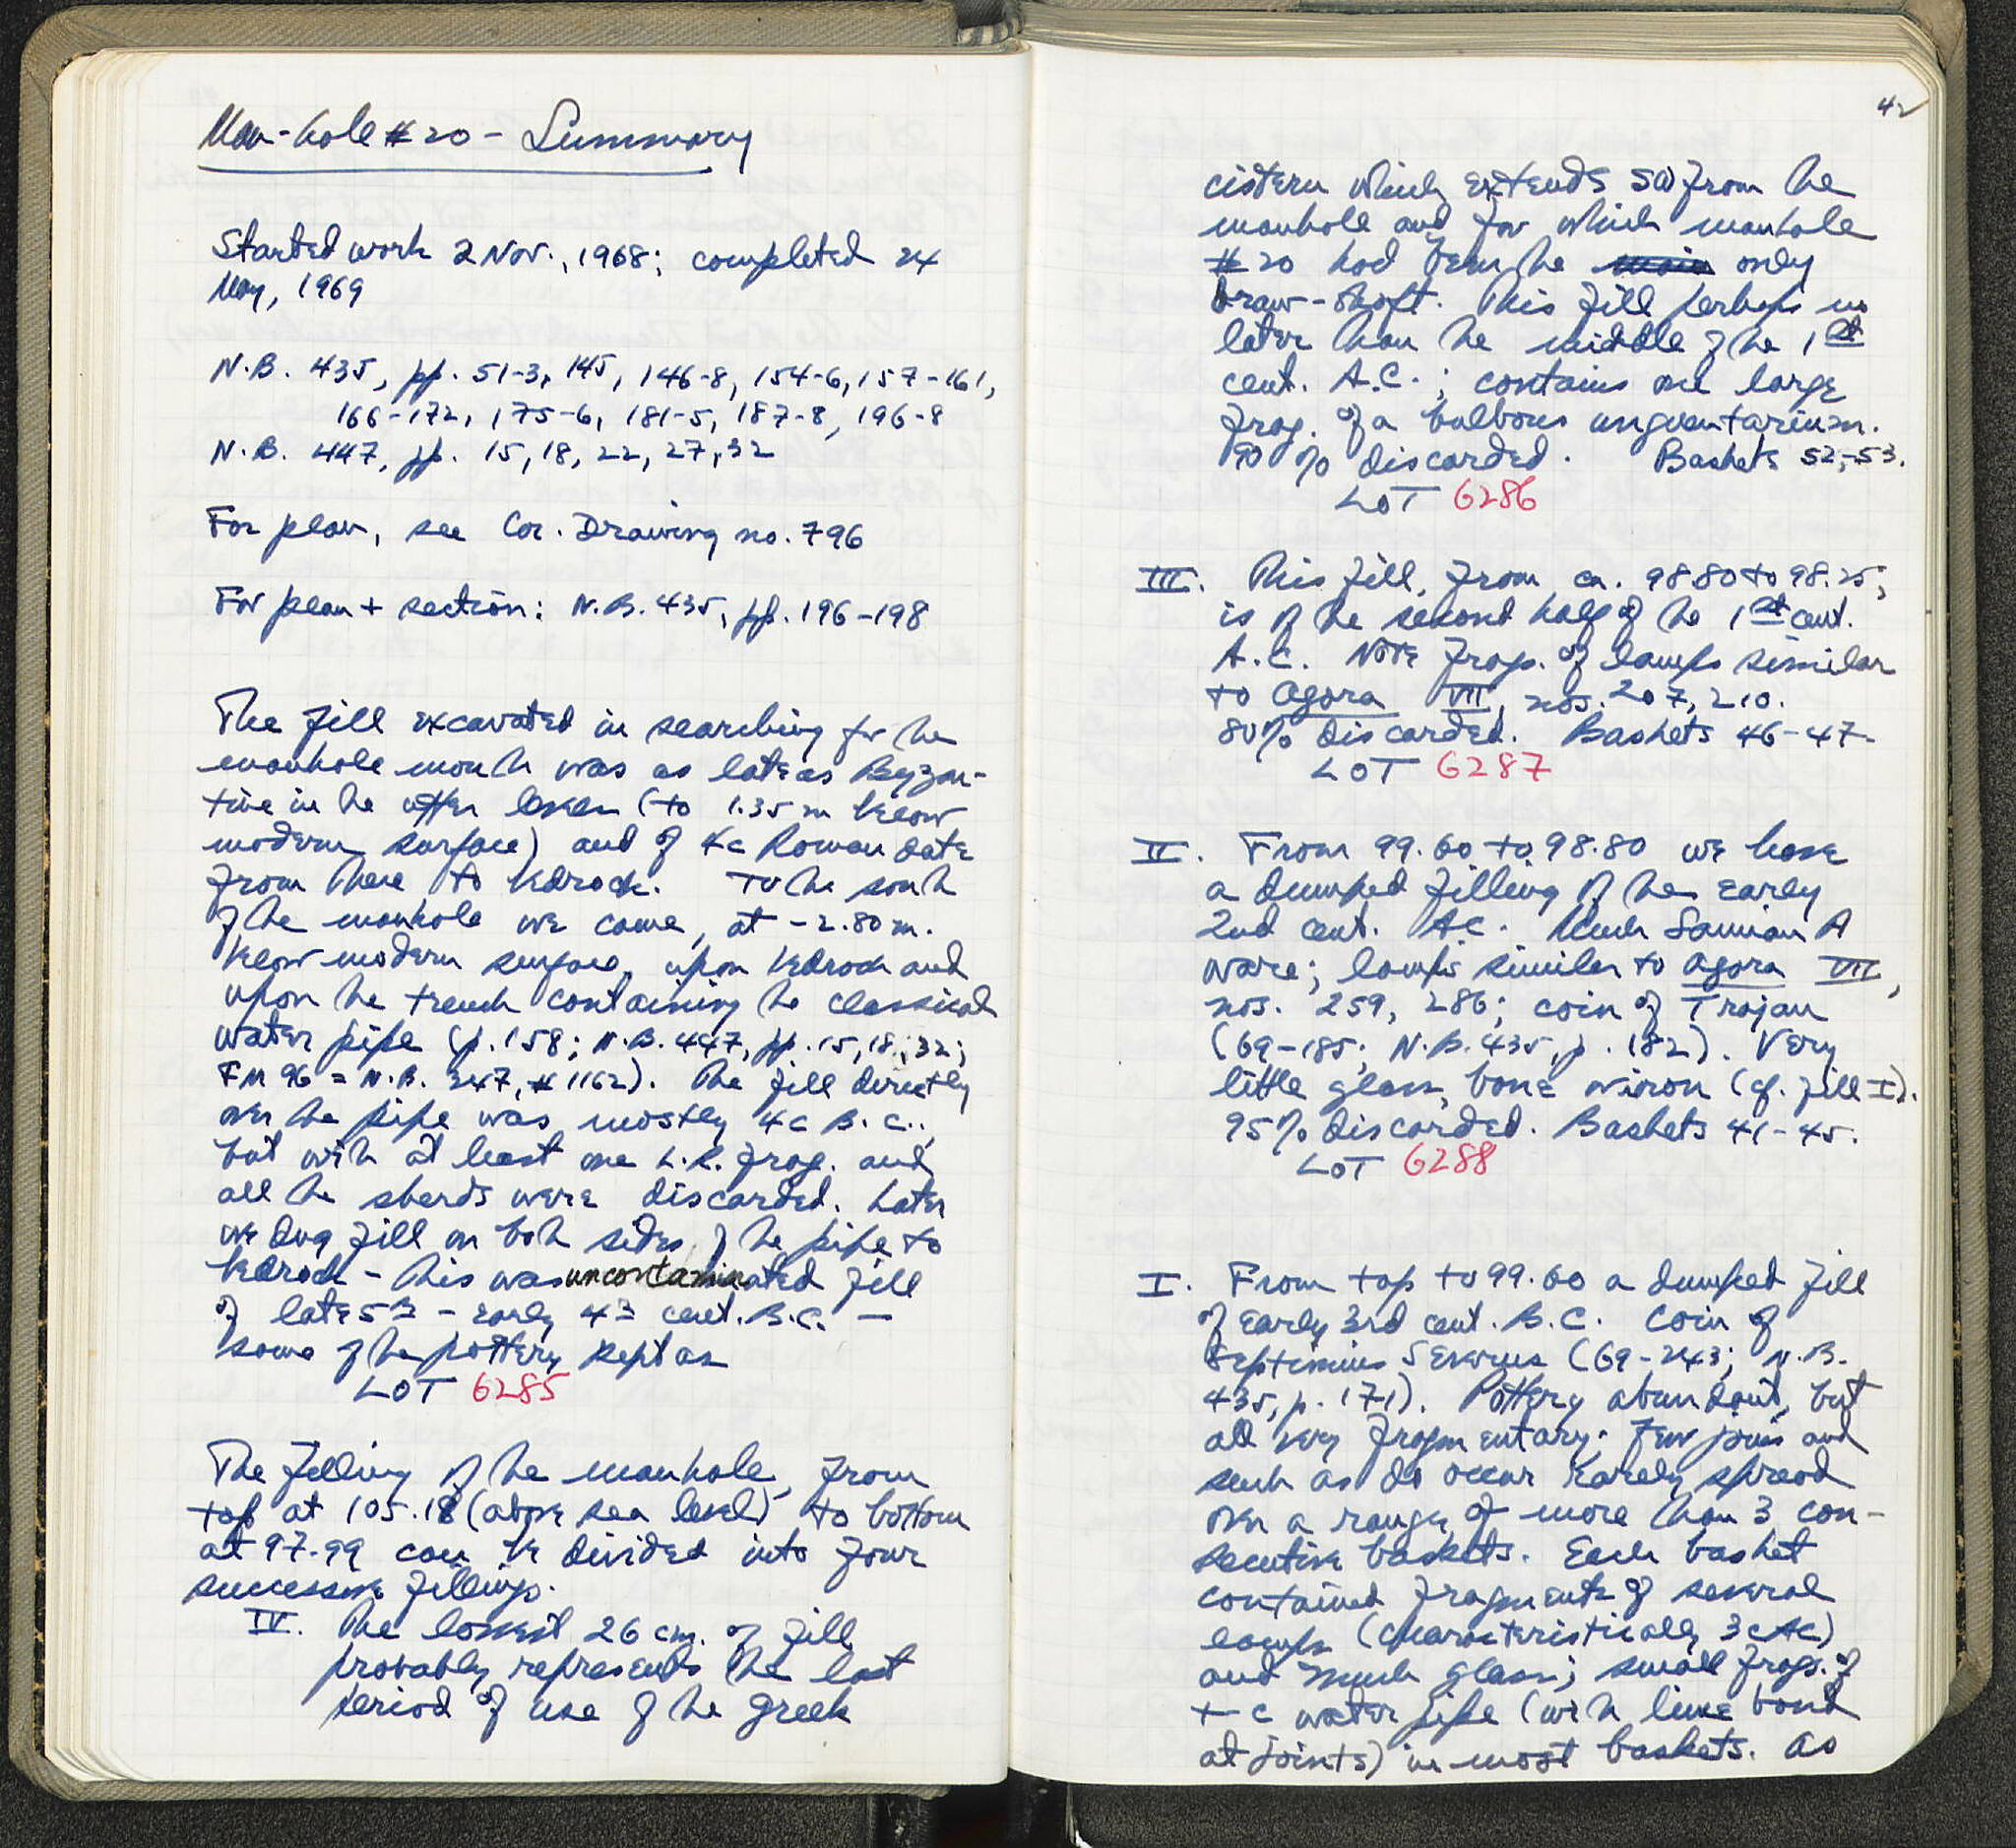 Man-hole # 20 - Summary
Started work 2 Nov., 1968; completed 24
May, 1969
N.B. 435, pp. 51-3, 145, 146-8, 154-6, 157-161,
166-172, 175-6, 181-5, 187-8, 196-8
N.B. 447, pp. 15, 18, 22, 27, 32
For plan, see Cor. Drawing no. 796
For plan + section: N.B. 435, pp. 196-198
The fill excavated in searching for the
manhole mouth was as late as Byzan-
tine in the upper levels (to 1.35 m below
modern surface) and of 4c Roman date
from there to bedrock. To the south
of the manhole we came, at -2.80 m.
below modern surface, upon bedrock and
upon the trench containing the classical
water pipe (p. 158; N.B. 447, pp. 15, 18, 32;
FM 96 = N.B. 247, # 1162). The fill directly
over the pipe was mostly 4c B.C.,
but with at least one L.R. frag. and
all the sherds were discarded. Later
we dug fill on both sides of the pipe to
bedrock - this was uncontaminated fill
of late 5th - early 4th cent. B.C. —
some of the pottery kept as
LOT 6285
The filling of the manhole, from
top at 105.18 (above sea level) to bottom
at 97.99 can be divided into four
successive fillings.
IV. The lowest 26 cm. of fill
probably represents the last
period of use of the Greek
42
cistern which extends SW from the
manhole and for which manhole
# 20 had been the main only
draw-shaft. This fill perhaps no
later than the middle of the 1st
cent. A.C.; contains one large
frag. of a bulbous unguentarium.
90% discarded. Baskets 52-53.
LOT 6286
III. This fill, from ca. 98.80 to 98.25,
is of the second half of the 1st cent.
A.C. Note frags. of lamps similar
to Agora VII, nos. 207, 210.
80% discarded. Baskets 46-47.
LOT 6287
II. From 99.60 to 98.80 we have
a dumped filling of the early
2nd cent. AC. Much Samian A
ware; lamps similar to Agora VII,
nos. 259, 286; coin of Trajan
(69-185; N.B. 435, p. 182). Very
little glass, bone or iron (cf. fill I).
95% discarded. Baskets 41-45.
LOT 6288
I. From top to 99.60 a dumped fill
of early 3rd cent. B.C. Coin of
Septimius Severus (69-243; N.B.
435, p. 171). Pottery abundant, but
all very fragmentary; few joins and
such as do occur rarely spread
over a range of more than 3 con-
secutive baskets. Each basket
contained fragments of several
lamps (characteristically 3c AC)
and much glass; small frags. of
t-c water pipe (with lime bond
at joints) in most baskets. As